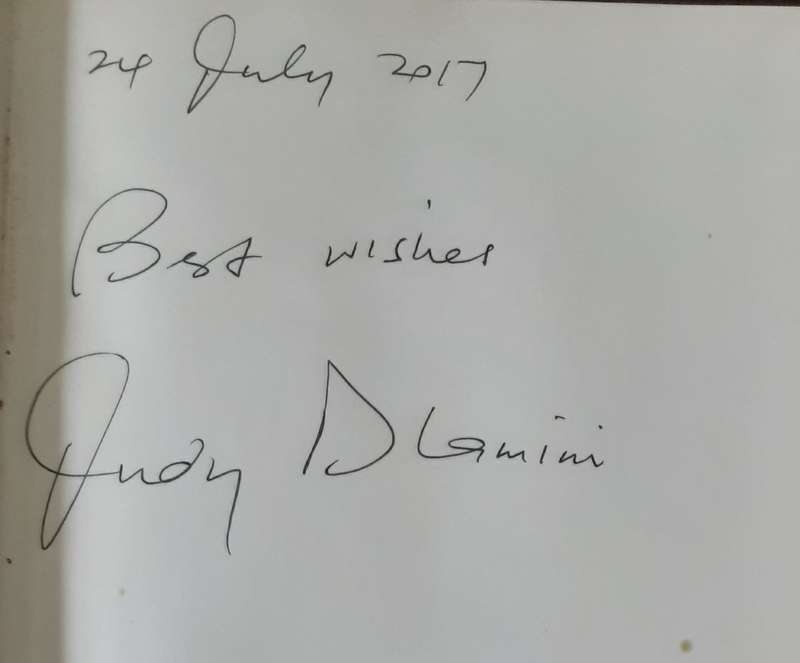 24 July 2017
Best wishes
Judy Dlamini